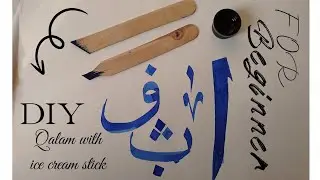 FOR
Beginner
DIY
Qalam with
ice cream stick
ا ب ث ف